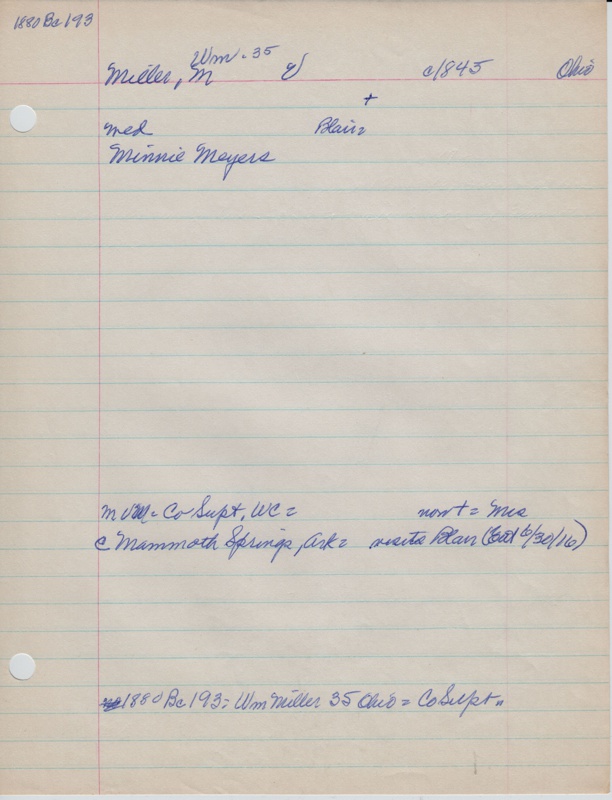 1880 Bc 193
Wm - 35
Miller, M c1845 Ohio
+
med Blair=
Minnie Meyers
Co Supt, WC = now + = Mrs
c Mammoth Springs, Ark = visits Blair (Ent 6/30/16)
1880 Bc 193 = Wm Miller 35 Ohio = Co Supt "